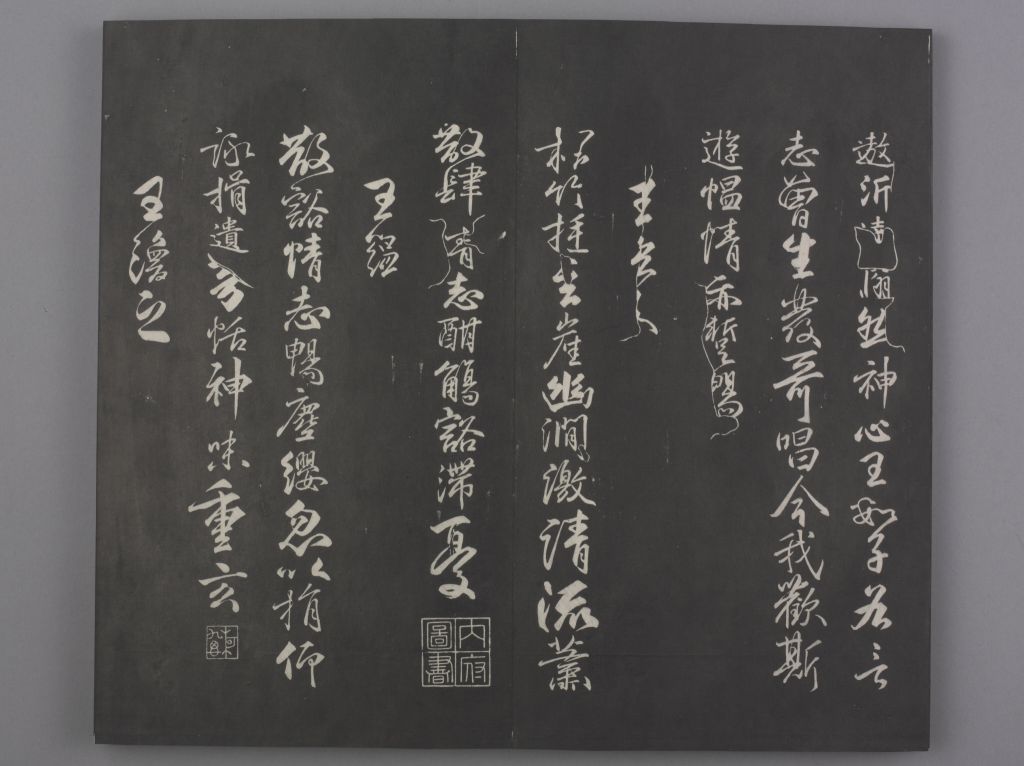 遨沂津翛然神心王數子各言
志曾生發奇唱今我歡斯
遊慍情亦暫暢
王玄之
松竹挺岩崖幽澗激清流蕭
散肆情志酣觴豁滯憂
內府圖書
王蘊
散豁情志暢塵纓忽以捐仰
詠挹遺芳恬神味重玄
王渙之